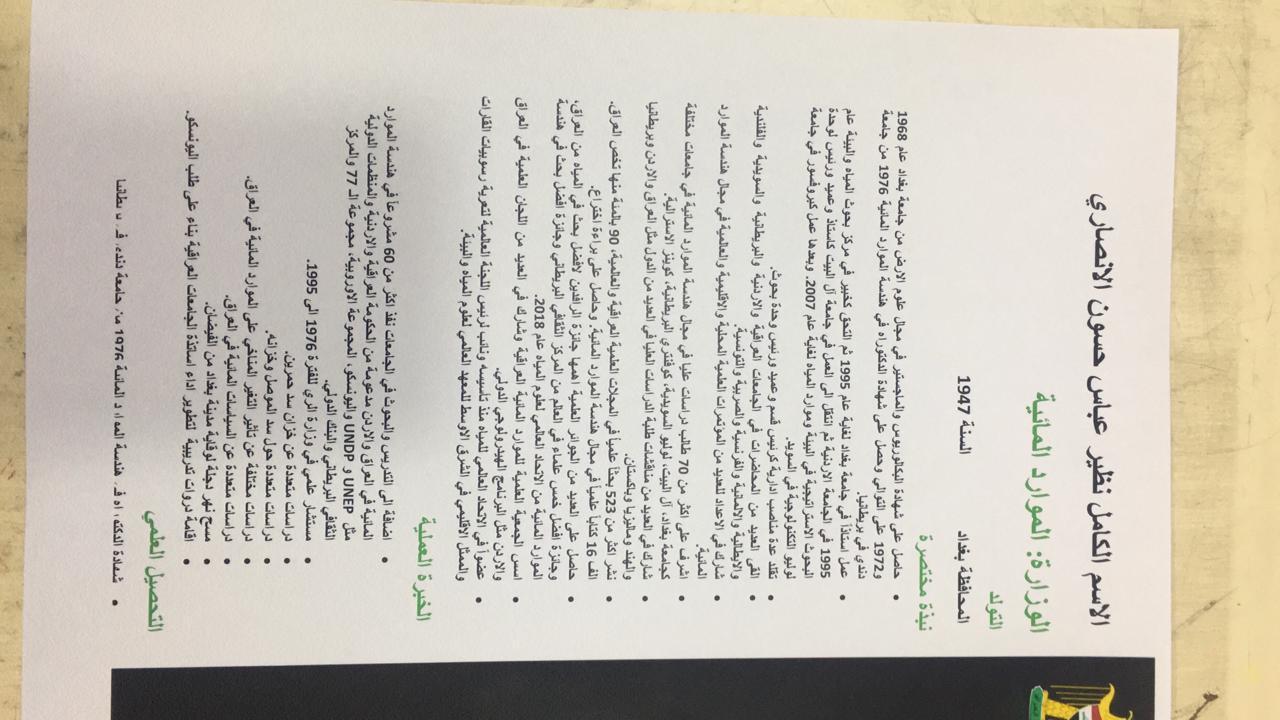 الاسم الكامل نظير عباس حسون الانصاري
الوزارة: الموارد المائية
التولد
المحافظة بغداد السنة 1947
نبذة مختصرة
• حاصل على شهادة البكالوريوس والماجستير في مجال علوم الارض من جامعة بغداد عام 1968
و1972 على التوالي وحصل على شهادة الدكتوراه في هندسة الموارد المائية 1976 من جامعة
دندي في بريطانيا.
• عمل استاذاً في جامعة بغداد لغاية عام 1995 ثم التحق كخبير في مركز بحوث المياه والبيئة عام
1995 في الجامعة الاردنية ثم انتقل الى العمل في جامعة آل البيت كاستاذ وعميد ورئيس لوحدة
البحوث الاستراتيجية في البيئة وموارد المياه لغاية عام 2007. وبعدها عمل كبروفسور في جامعة
لوليو التكنولوجية في السويد.
• تقلد عدة مناصب ادارية كرئيس قسم وعميد ورئيس وحدة بحوث.
• القى العديد من المحاضرات في الجامعات العراقية والاردنية والبريطانية والسويدية والفلندية
والايطالية والالمانية والفرنسية والصربية والتونسية.
• شارك في الاعداد للعديد من المؤتمرات العلمية المحلية والاقليمية والعالمية في مجال هندسة الموارد
المائية
• اشرف على اكثر من 70 طالب دراسات عليا في مجال هندسة الموارد المائية في جامعات مختلفة
كجامعة بغداد، آل البيت، لوليو السويدية، كوفنتري البريطانية، كوينز الاسترالية.
• شارك في العديد من مناقشات طلبة الدراسات العليا في العديد من الدول مثل العراق والاردن وبريطانيا
والهند وماليزيا وباكستان.
• نشر اكثر من 523 بحثاً علمياً في المجلات العلمية العراقية والعالمية، 90 بالمئة منها تخص العراق.
• الف 16 كتاباً علمياً في مجال هندسة الموارد المائية وحاصل على براءة اختراع.
• حاصل على العديد من الجوائز العلمية اهمها جائزة الرافدين لافضل بحث في المياه من العراق،
وجائزة افضل خمس علماء في العالم من المركز الثقافي البريطاني وجائزة افضل بحث في هندسة
الموارد المائية من الاتحاد العالمي لعلوم المياه عام 2018.
• اسس الجمعية العلمية للموارد المائية العراقية وشارك في العديد من اللجان العلمية في العراق
والاردن مثل البرنامج الهيدرولوجي الدولي.
• عضواً في الاتحاد العلمي للمياه منذ تأسيسه ونائب لرئيس اللجنة العالمية لتعرية رسوبيات القارات
والممثل الاقليمي في الشرق الاوسط للمعهد العالمي لعلوم المياه والبيئة.
الخبرة العملية
• اضافة الى التدريس والبحوث في الجامعات نفذ اكثر من 60 مشروعاً في هندسة الموارد
المائية في العراق والاردن مدعومة من الحكومة العراقية والاردنية والمنظمات الدولية
مثل UNEP و UNDP واليونسكو، المجموعة الاوروبية، مجموعة الـ 77 والمركز
الثقافي البريطاني والبنك الدولي.
• مستشار علمي في وزارة الري للفترة 1976 الى 1995.
• دراسات متعددة عن خزان سد حمرين.
• دراسات متعددة حول سد الموصل وخزانه.
• دراسات مختلفة عن تأثير التغير المناخي على الموارد المائية في العراق.
• دراسات متعددة عن السياسات المائية في العراق.
• مسح نهر دجلة لوقاية مدينة بغداد من الفيضان.
• اقامة دورات تدريبية لتطوير اداء اساتذة الجامعات العراقية بناء على طلب اليونسكو.
التحصيل العلمي
• شهادة الدكتوراه في هندسة الموارد المائية 1976 من جامعة دندي في بريطانيا